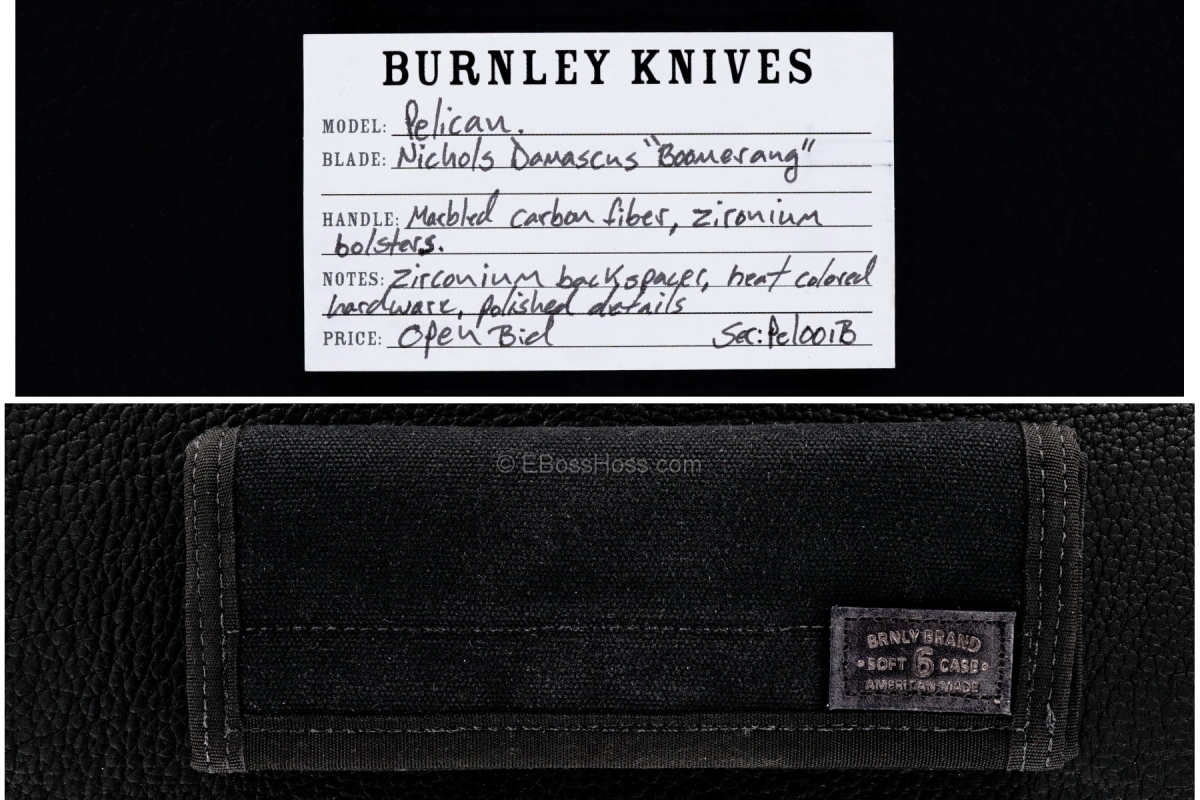 BURNLEY KNIVES
MODEL: Pelican.
BLADE: Nichols Damascus "Boomerang"
HANDLE: Marbled carbon fiber, zironium
bolsters.
NOTES: Zirconium backspacer, heat colored
hardware, polished details
PRICE: Open Bid Ser: Pel001B
© EBossHoss.com
BRNLY BRAND
• SOFT 6 CASE •
AMERICAN MADE